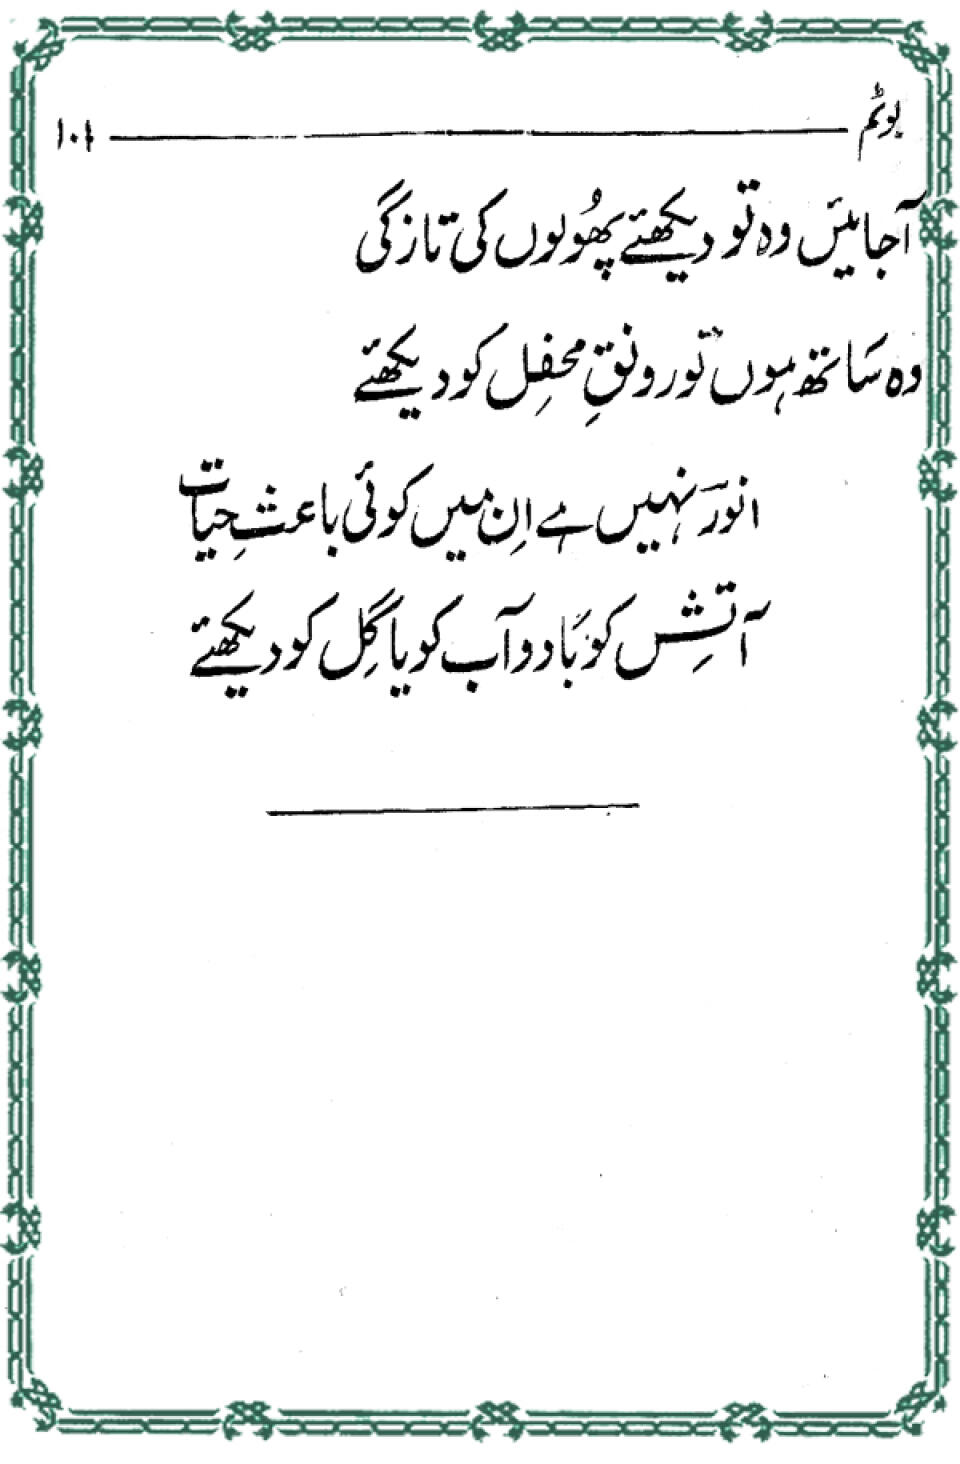 بوٹم ۱۰۱
آجائیں وہ تو دیکھئے پھُولوں کی تازگی
وہ سَاتھ ہوں تو رونقِ محفِل کو دیکھئے
انورؔ نہیں ہے اِن میں کوئی باعثِ حیات
آتشِ کو بَاد و آب کو یا گِل کو دیکھئے